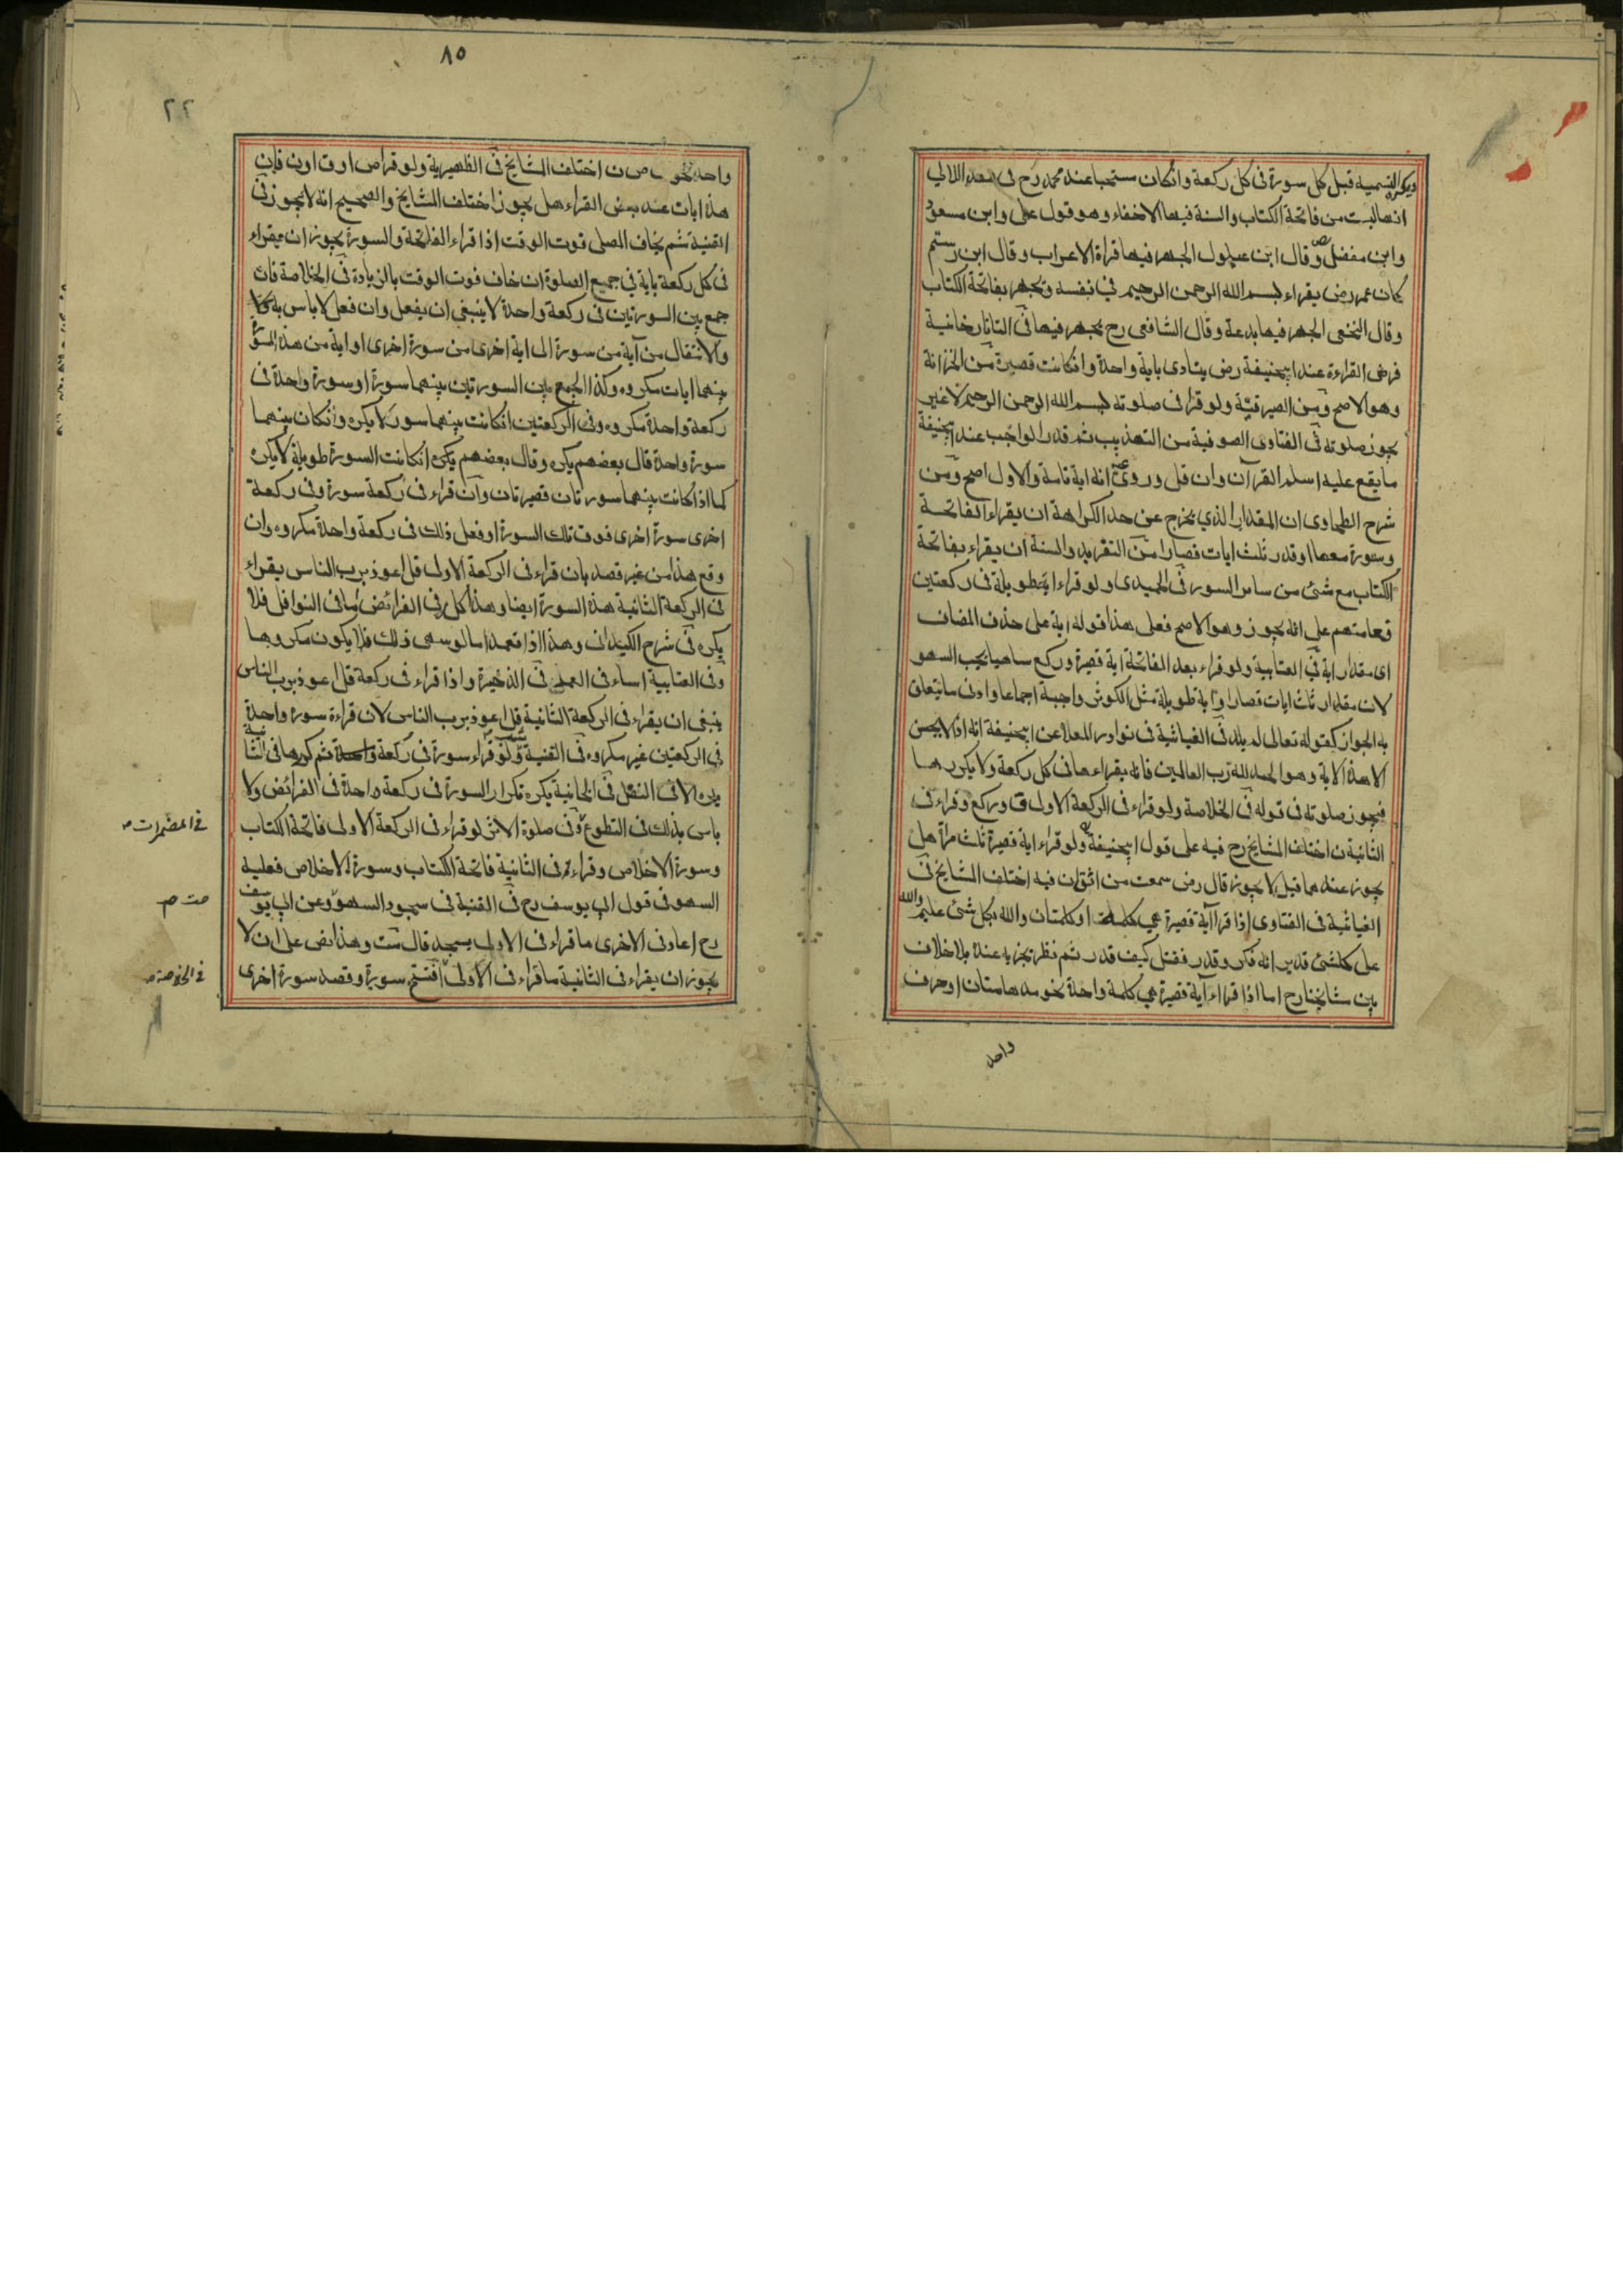 ويكره التسمية قبل كل سورة فى كل ركعة وانكان مستحبا عند محمد رح فى اللالي
انها ليست من فاتحة الكتاب والسنة فيها الاخفاء وهو قول على وابن مسعود
وابن مفضل وقال ابن الجهر فيها قراة الاعراب وقال ابن رستم
كان عمر رض يقراء بسم الله الرحمن الرحيم في نفسه ويجهر بفاتحة الكتاب
وقال النخعى الجهر فيها بدعة وقال الشافعى رح يجهر فيها فى التاتارخانية
فرض القراءة عند ابيحنيفة رض يتادى باية واحدة وانكانت قصيرة من الخزانة
وهو الاصح ومن الصيرفية ولو قرا فى صلوته بسم الله الرحمن الرحيم لا غير
يجوز صلوته فى الفتاوى الصوفية من التهذيب ثم قدر الواجب عند ابيحنيفة
ما يقع عليه اسم القرآن وان قل وروى عنه انه اية تامة والاول اصح ومن
شرح الطحاوى ان المقدار الذي يخرج عن حد الكراهة ان يقراء الفاتحة
وسورة معها او قدر ثلث ايات قصار من التفريد والسنة ان يقراء بفاتحة
الكتاب مع شئ من سائر السور فى الحميدى ولو قراء اية طويلة فى ركعتين
فعامتهم على انه يجوز وهو الاصح فعلى هذا قوله اية على حذف المضاف
اى مقدار اية فى العتابية ولو قراء بعد الفاتحة اية قصيرة وركع ساهيا يجب السهو
لان مقدار ثلث ايات قصار او اية طويلة مثل الكوثر واجبة اجماعا وادنى ما يتعلق
به الجواز كقوله تعالى لم يلد فى الغياثية فى نوادر المعلا عن ابيحنيفة انه اذا لا يحسن
الا هذا الاية وهو الحمد لله رب العالمين فانه يقراءها فى كل ركعة ولا يكررها
فيجوز صلوته فى قوله فى الخلاصة ولو قراء فى الركعة الاولى ق وركع وقراء فى
الثانية ن اختلف المشايخ رح فيه على قول ابيحنيفة ولو قراء اية قصيرة ثلث مراة هل
يجوز عندهما قيل لا يجوز قال رض سمعت من اثق ان فيه اختلف المشايخ فى
الغياثية فى الفتاوى اذا قرا آية قصيرة هي كلمة او كلمتان والله بكل شئ عليم والله
على كلشئ قدير انه فكر وقدر فقتل كيف قدر ثم نظر تجزيه عنده بلا خلاف
بين مشايخنا رح اما اذا قراء آية قصيرة هي كلمة واحدة نحو مدهامتان او حرف
واحد
٨٥
٢٢
واحد نحو ص ن اختلف المشايخ فى الظهيرية ولو قرا ص او ق او ن فان
هذه ايات عند بعض القراء هل يجوز اختلف المشايخ والصحيح انه لا يجوز فى
القنية ثم يخاف المصلى فوت الوقت اذا قراء الفاتحة والسورة يجوز ان يقراء
فى كل ركعة باية في جميع الصلوة ان خاف فوت الوقت بالزيادة فى الخلاصة فان
جمع بين السورتين فى ركعة واحدة لا ينبغى ان يفعل وان فعل لا باس به
والانتقال من آية من سورة الى اية اخرى من سورة اخرى او اية من هذه السورة
بينهما ايات مكروه وكذا الجمع بين السورتين بينهما سورة او سورة واحدة فى
ركعة واحدة مكروه وفى الركعتين انكانت بينهما سور لا يكره وانكان بينهما
سورة واحدة قال بعضهم يكره وقال بعضهم يكره انكانت السورة طويلة لا يكره
كما اذا كانت بينهما سورتان قصيرتان وان قراء فى ركعة سورة وفى ركعة
اخرى سورة اخرى فوق تلك السورة او فعل ذلك فى ركعة واحدة مكروه وان
وقع هذا من غير قصد بان قراء فى الركعة الاولى قل اعوذ برب الناس يقراء
فى الركعة الثانية هذه السورة ايضا وهذا كله فى الفرائض اما فى النوافل فلا
يكره فى شرح الكيدانى وهذا اذا تعمد اما لو سهى ذلك فلا يكون مكروها
وفى العتابية اساء فى العمد فى الذخيرة واذا قراء فى ركعة قل اعوذ برب الناس
ينبغى ان يقراء فى الركعة الثانية قل اعوذ برب الناس لان قراءة سورة واحدة
فى الركعتين غير مكروه فى القنية ولو قراء سورة فى ركعة واحدة ثم كررها فى الثانية
يكره الا فى النفل فى الخانية يكره تكرار السورة فى ركعة واحدة فى الفرائض ولا
باس بذلك فى التطوع وفى صلوة الاثر لو قراء فى الركعة الاولى فاتحة الكتاب
وسورة الاخلاص وقراء فى الثانية فاتحة الكتاب وسورة الاخلاص فعليه
السهو فى قول ابى يوسف رح فى القنية فى سجود السهو وعن ابى يوسف
رح اعاد فى الاخرى ما قراء فى الاولى يسجد قال وهذا نص على ان لا
يجوز ان يقراء فى الثانية ما قراء فى الاولى افتتح سورة وقصد سورة اخرى
فى المضمرات
فى الخلاصة